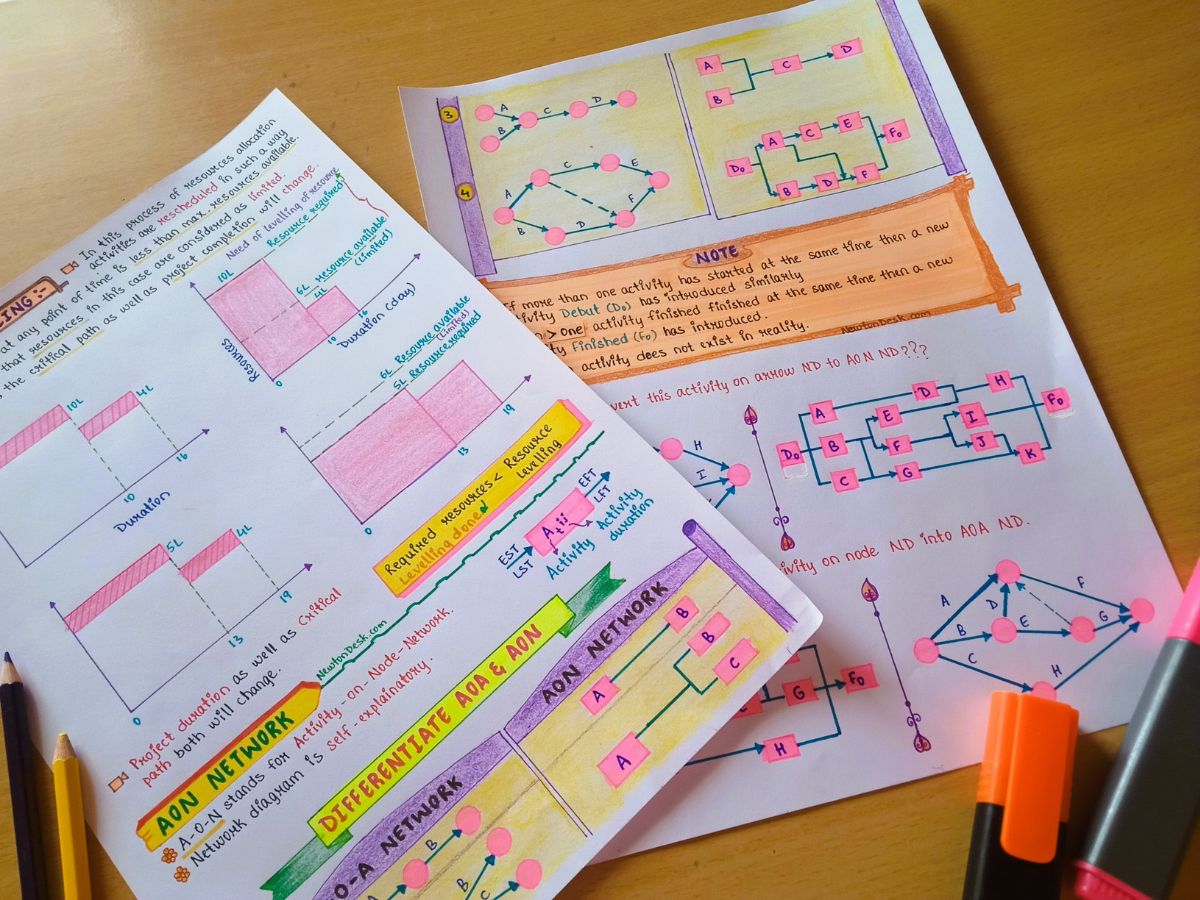 ING :-
In this process of resources allocation
activities are rescheduled in such a way
at any point of time is less than max. resources available.
that resources in this case are considered as limited.
critical path as well as project completion will change.
Need of levelling of resource
10L
Resource required
6L
4L
Resource available
(Limited)
Resources
0
10
16
Duration (day)
10L
4L
10
16
Duration
6L
Resource available
(Limited)
5L
Resource required
0
13
19
5L
4L
0
13
19
Required resources < Resource
Levelling done
Levelling
EST
LST
A
tij
EFT
LFT
Activity
Activity
duration
Project duration as well as Critical
path both will change.
NewtonDesk.com
AON NETWORK
A-O-N stands for Activity-on-Node-Network.
Network diagram is self-explainatory.
DIFFERENTIATE AOA & AON
O-A NETWORK
AON NETWORK
B
B
C
A
B
A
B
C
A
3
A
B
C
D
A
B
C
D
4
A
B
C
D
E
F
D₀
A
B
C
D
E
F
F₀
NOTE
If more than one activity has started at the same time then a new
tivity Debut (D₀) has introduced similarly
> one activity finished finished at the same time then a new
ty Finished (F₀) has introduced.
activity does not exist in reality.
NewtonDesk.com
vert this activity on arrow ND to AON ND???
H
I
D₀
A
B
C
D
E
F
G
H
I
J
K
F₀
ivity on node ND into AOA ND.
G
F₀
H
A
B
C
D
E
F
G
H